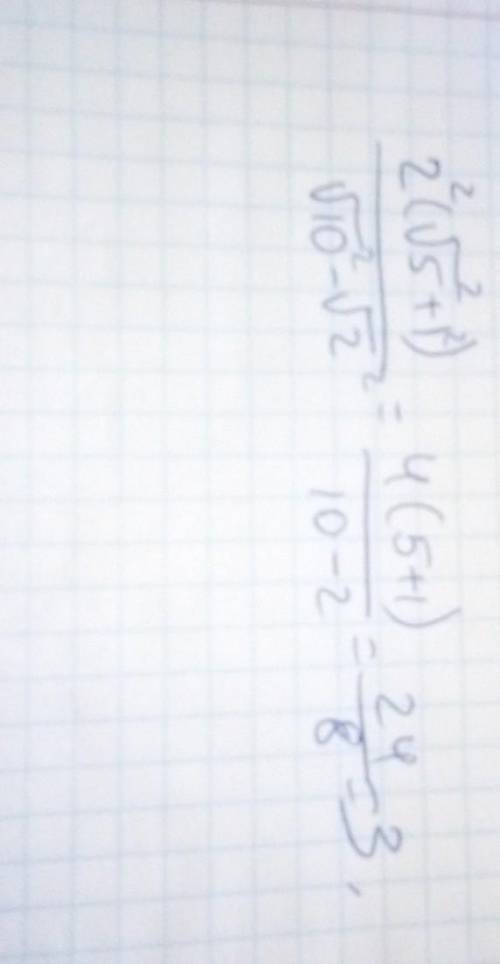 2²(√5²+1²) / √10²-√2² = 4(5+1) / 10-2 = 24 / 8 = 3,